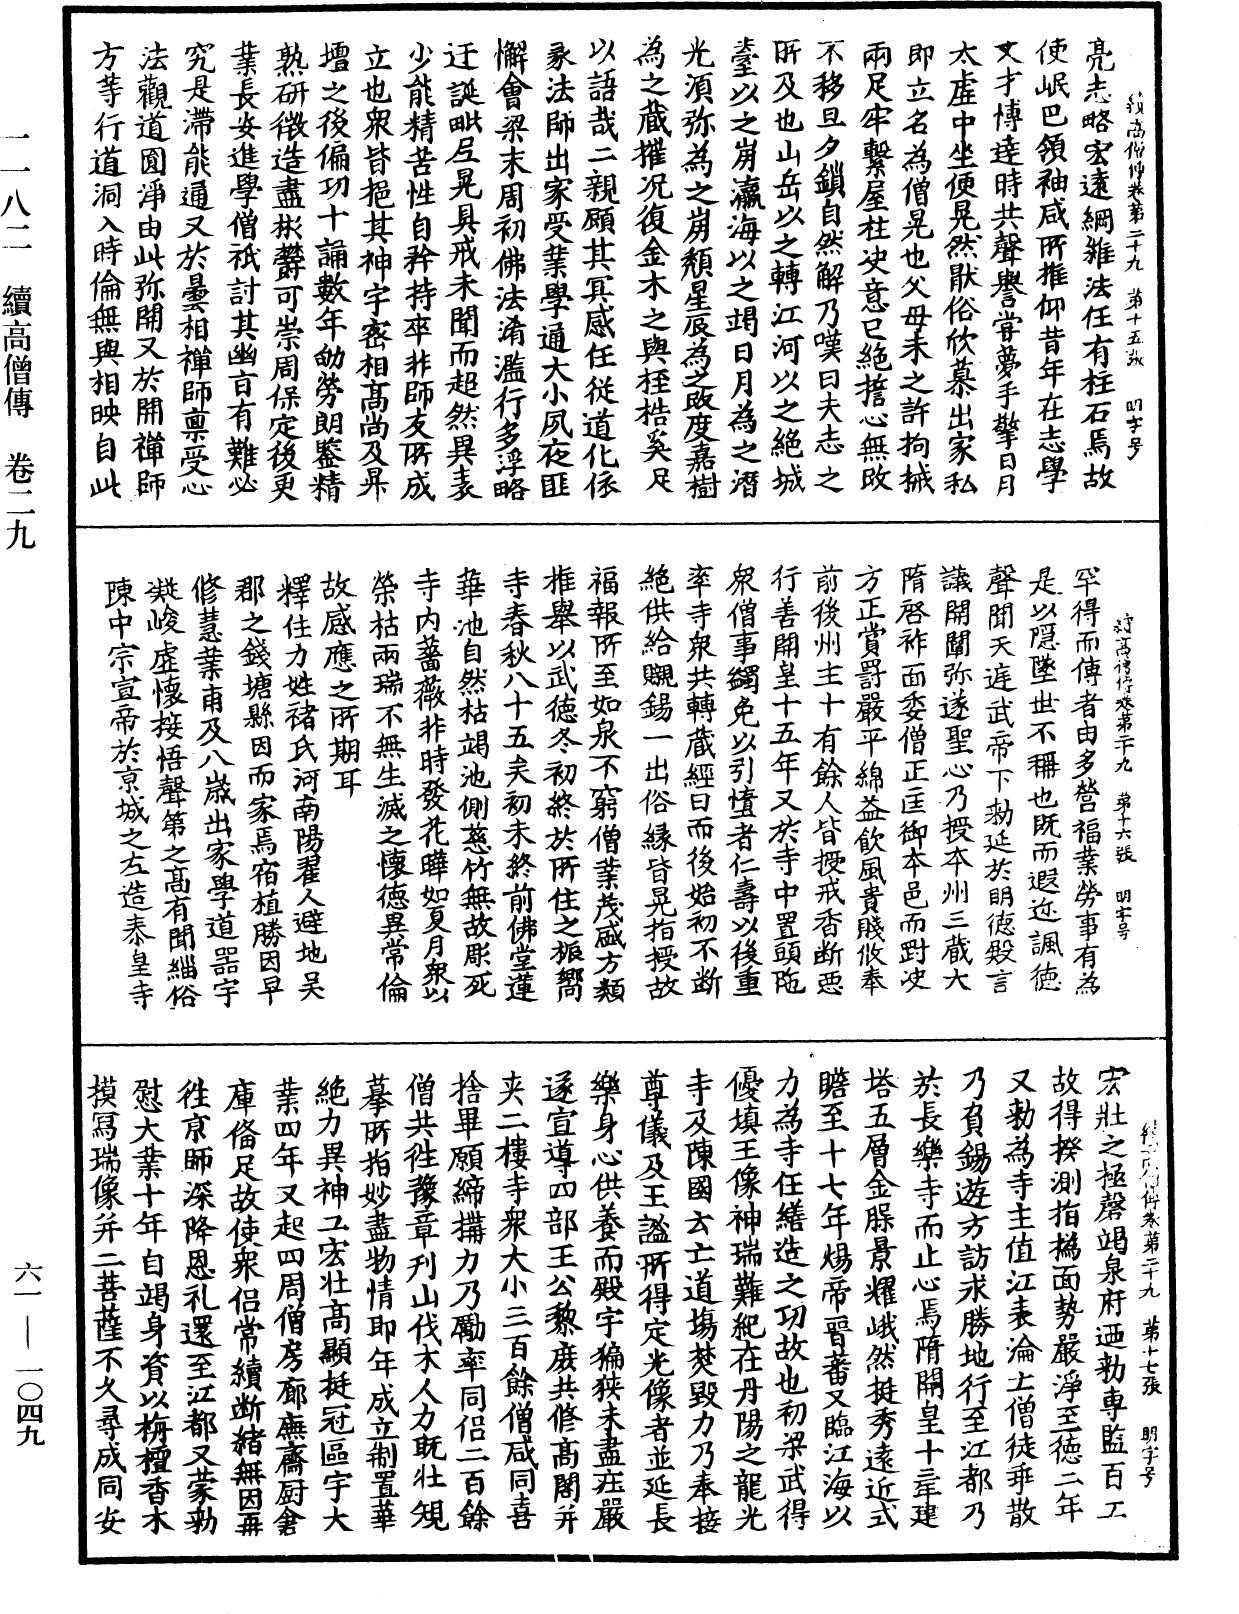 續高僧傳卷第二十九　第十五張　明字号
亮志略宏遠綱維法任有柱石焉故
使岷巴領袖咸所推仰昔年在志學
文才博達時共聲譽甞夢手擎日月
太虛中坐便晃然猒俗欣慕出家私
即立名為僧晃也父母未之許拘械
兩足牢繫屋柱决意已絶誓心無改
不移旦夕鎖自然解乃嘆曰夫志之
所及也山岳以之轉江河以之絶城
臺以之崩瀛海以之竭日月為之潛
光須弥為之崩頹星辰為之改度嘉樹
為之藏摧况復金木之與桎梏奚足
以語哉二親願其冥感任從道化依
彖法師出家受業學通大小夙夜匪
懈會梁末周初佛法淆濫行多浮略
迂誕毗尼晃具戒未聞而超然異表
少能精苦性自矜持卒非師友所成
立也衆皆挹其神宇密相髙尚及昇
壇之後偏功十誦數年劬勞朗鑒精
熟研徵造盡彬欝可崇周保定後更
業長安進學僧祇討其幽旨有難必
究是滯能通又於曇相禪師禀受心
法觀道圓淨由此弥開又於開禪師
方等行道洞入時倫無與相映自此
續高僧傳卷第二十九　第十六張　明字号
罕得而傳者由多營福業勞事有為
是以隱墜世不稱也既而遐迩諷徳
聲聞天𨓍武帝下勅延於明徳殿言
議開闡弥遂聖心乃授本州三藏大
隋啓祚面委僧正匡御本邑而剛决
方正賞罰嚴平綿益飲風貴賤攸奉
前後州主十有餘人皆授戒香断惡
行善開皇十五年又於寺中置頭陁
衆僧事蠲免以引憶者仁壽以後重
率寺衆共轉藏經日而後始初不断
絶供給嚫錫一出俗縁皆晃指授故
福報所至如泉不窮僧業茂盛方類
推舉以武徳冬初終於所住之振嚮
寺春秋八十五矣初未終前佛堂蓮
華池自然枯竭池側慈竹無故彫死
寺内薔薇非時發花曄如夏月衆以
榮枯兩瑞不無生滅之懐徳異常倫
故感應之所期耳
釋住力姓禇氏河南陽翟人避地吳
郡之錢塘縣因而家焉宿植勝因早
修慧業甫及八歲出家學道器宇
凝峻虛懐接悟聲第之髙有聞緇俗
陳中宗宣帝於京城之左造泰皇寺
第二十九　第十七張　明字号
宏壯之極罄竭泉府迺勅專監百工
故得揆測指撝面勢嚴淨至徳二年
又勅為寺主值江表淪亡僧徒乖散
乃負錫遊方訪求勝地行至江都乃
於長樂寺而止心焉隋開皇十三年建
塔五層金腺景耀峨然挺秀遠近式
瞻至十七年煬帝晉蕃又臨江海以
力為寺任繕造之功故也初梁武得
優填王像神瑞難紀在丹陽之龍光
寺及陳國云亡道塲焚毀力乃奉接
尊儀及王謐所得定光像者並延長
樂身心供養而殿宇褊狹未盡莊嚴
遂宣導四部王公黎庶共修髙閣并
夹二樓寺衆大小三百餘僧咸同喜
捨畢願締搆力乃勵率同侣二百餘
僧共徃豫章刊山伐木人力既壯規
摹所指妙盡物情即年成立制置華
絶力異神工宏壯髙顯挺冠區宇大
業四年又起四周僧房廊廡齋厨倉
庫俻足故使衆侣常續断緒無因再
徃京師深降恩礼還至江都又蒙勅
慰大業十年自竭身資以栴檀香木
摸寫瑞像并二菩薩不久尋成同安
一一八二　續高僧傳　卷二九
六一——一〇四九